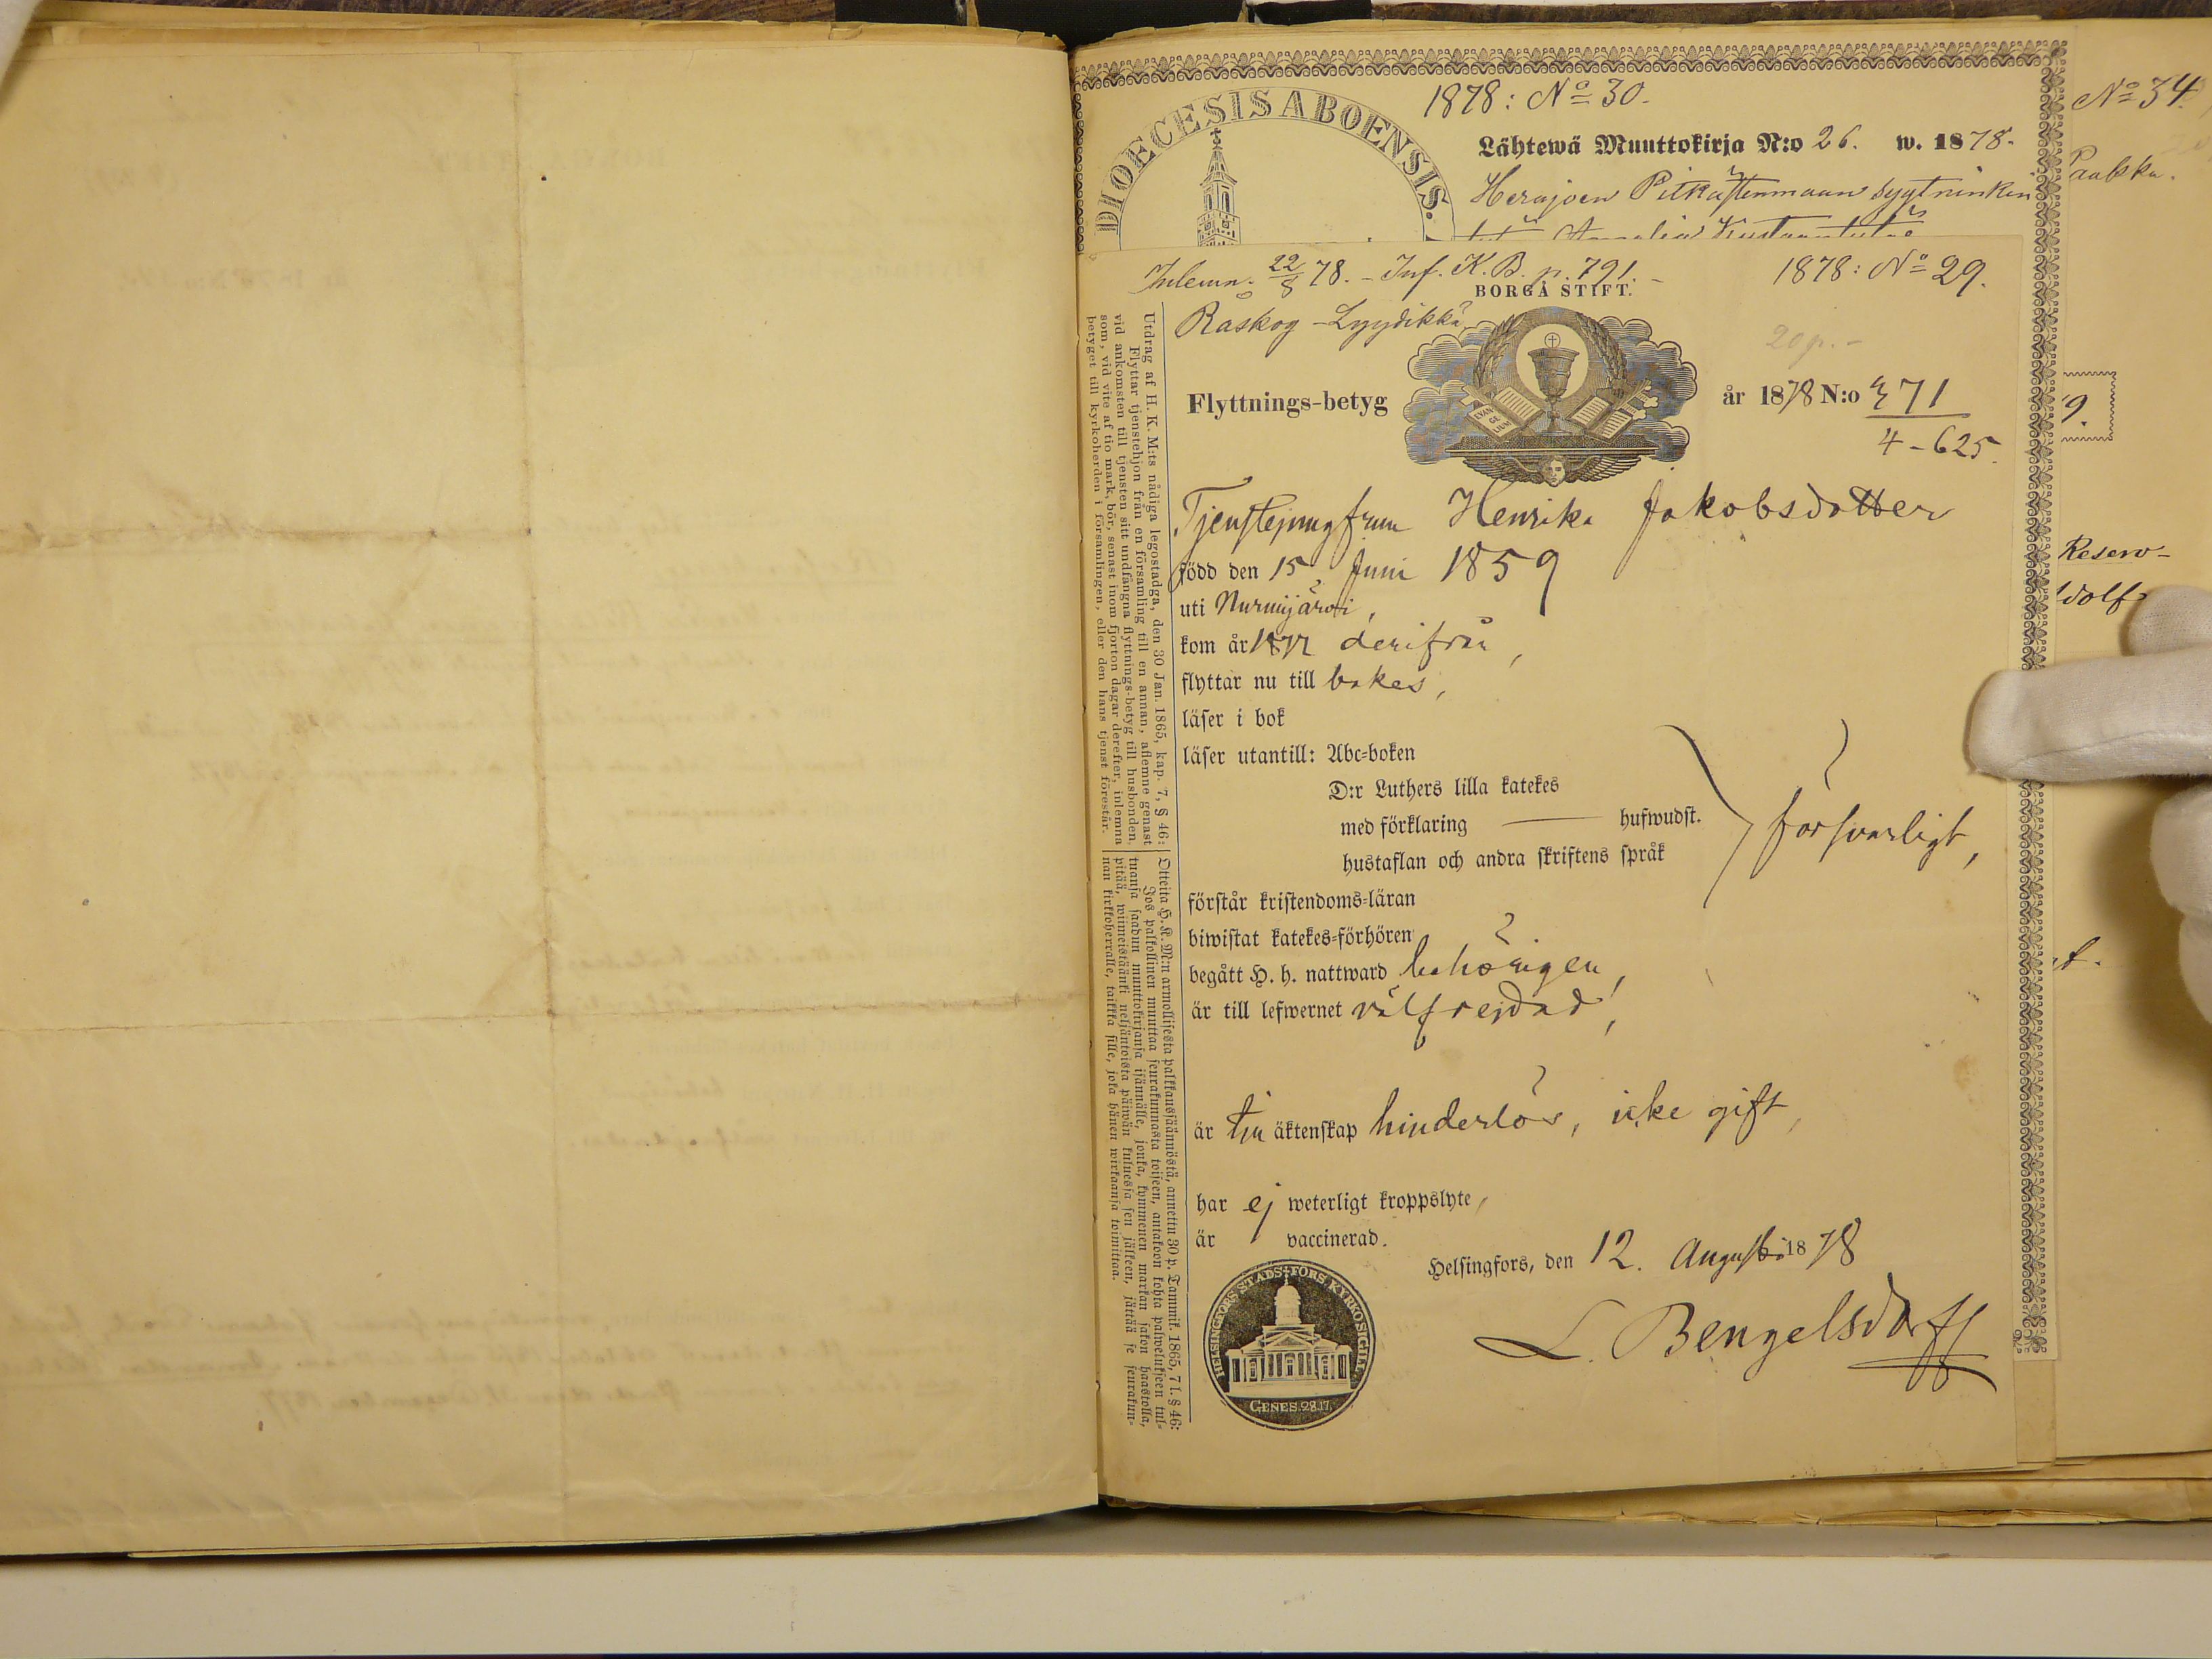 DIOECESIS ABOENSIS.
1878: No 30.
Lähtewä Muuttokirja N:o 26. w. 1878.
Herajoen
No 34.
Paakku.
Inlemn. 22/8 78. - Inf. K. B. p. 791. -
1878: No 29.
BORGÅ STIFT.
Raskog - Lyydikkä
20 p. -
EVAN GE LIUM
Flyttnings-betyg
år 1878 N:o 371
4-625.
Tjenstejungfrun Henrika Jakobsdotter
född den 15 Juni 1859
uti Nurmijärvi,
kom år 1877 derifrån,
flyttar nu till bakes,
läser i bok
läser utantill: Abc-boken
D:r Luthers lilla katekes
med förklaring hufwudst.
hustaflan och andra skriftens språk
försvarligt,
förstår kristendoms-läran
biwistat katekes-förhören
begått H. h. nattward behörigen,
är till lefwernet välfrejdad,
är till äktenskap hinderlös, icke gift,
har ej weterligt kroppslyte,
är vaccinerad.
Helsingfors, den 12. Augusti 1878
L. Bengelsdorff
HELSINGFORS STADS-FÖRS KYRKOSIGILL
GENES. 28.17.
Utdrag af H. K. M:ts nådiga legostadga, den 30 Jan. 1865, kap. 7, § 46:
Flyttar tjenstehjon från en församling till en annan, aflemne genast
vid ankomsten till tjensten sitt undfångna flyttnings-betyg till husbonden,
som, vid vite af tio mark, bör, senast inom fjorton dagar derefter, inlemna
betyget till kyrkoherden i församlingen, eller den hans tjenst förestår.
Otteita H. K. M:n armollisesta palkkaussäännöstä, annettu 30 p. Tammik. 1865, 7 l. § 46:
Jos palkollinen muuttaa seurakunnasta toiseen, antakoon kohta palwelukseen tul-
tuansa saadun muuttokirjansa isännälle, jonka, kymmenen markan sakon haastolla,
pitää, wiimeistäänki neljäntoista päiwän kuluessa sen jälkeen, jättää se seurakun-
nan kirkkoherralle, taikka sille, joka hänen wirkaansa toimittaa.
9.
Reserv-
dolf